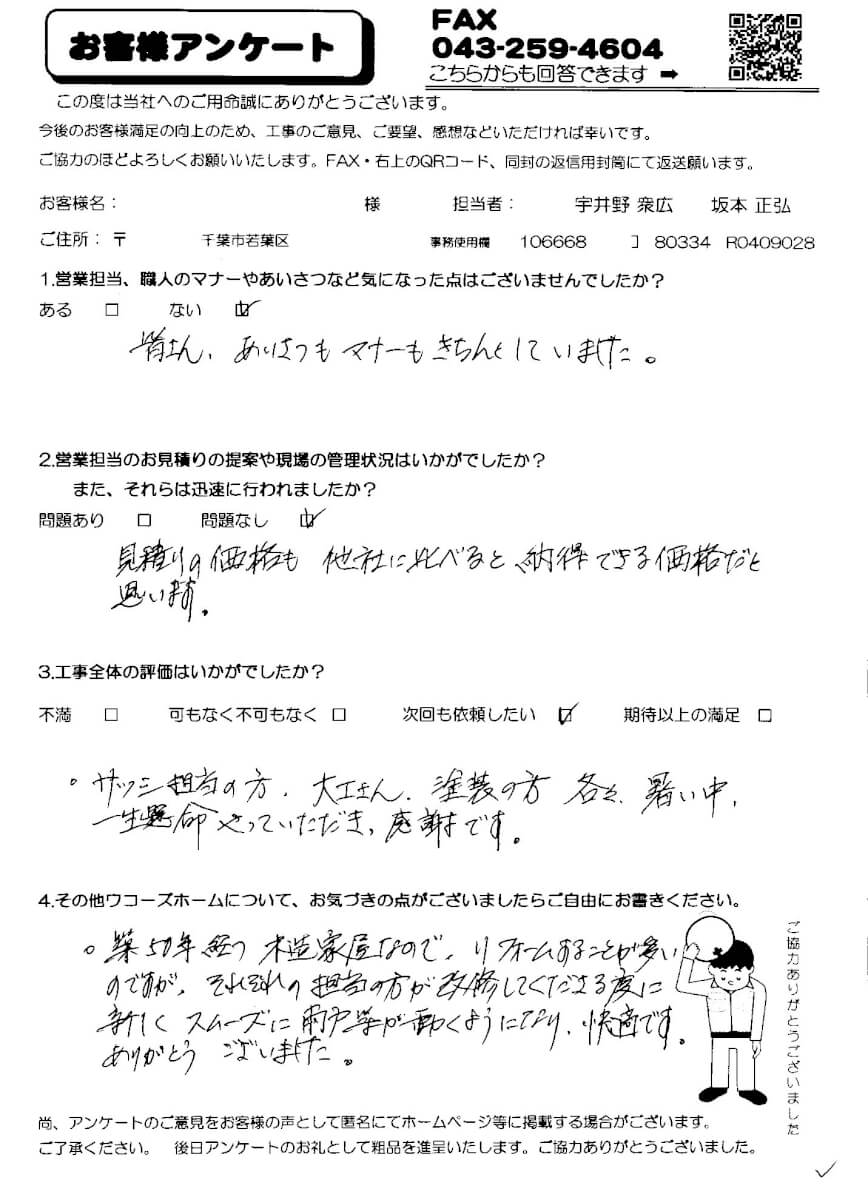 お客様アンケート
FAX
043-259-4604
こちらからも回答できます ➡
この度は当社へのご用命誠にありがとうございます。
今後のお客様満足の向上のため、工事のご意見、ご要望、感想などいただければ幸いです。
ご協力のほどよろしくお願いいたします。FAX・右上のQRコード、同封の返信用封筒にて返送願います。
お客様名： 様 担当者： 宇井野 衆広 坂本 正弘
ご住所：〒 千葉市若葉区 事務使用欄 106668 】 80334 R0409028
1.営業担当、職人のマナーやあいさつなど気になった点はございませんでしたか？
ある □ ない ☑
皆さん、あいさつも マナーも きちんとしていました。
2.営業担当のお見積りの提案や現場の管理状況はいかがでしたか？
また、それらは迅速に行われましたか？
問題あり □ 問題なし ☑
見積りの価格も 他社に比べると、納得できる価格だと
思います。
3.工事全体の評価はいかがでしたか？
不満 □ 可もなく不可もなく □ 次回も依頼したい ☑ 期待以上の満足 □
。サッシ担当の方、大工さん、塗装の方 各々、暑い中、
一生懸命やっていただき、感謝です。
4.その他ワコーズホームについて、お気づきの点がございましたらご自由にお書きください。
。築50年経つ 木造家屋なので、リフォームすることが多い
のですが、それぞれの担当の方が改修してくださる度に
新しく スムーズに雨戸等が動くようになり、快適です。
ありがとう ございました。
ご協力ありがとうございました
尚、アンケートのご意見をお客様の声として匿名にてホームページ等に掲載する場合がございます。
ご了承ください。 後日アンケートのお礼として粗品を進呈いたします。ご協力ありがとうございました。